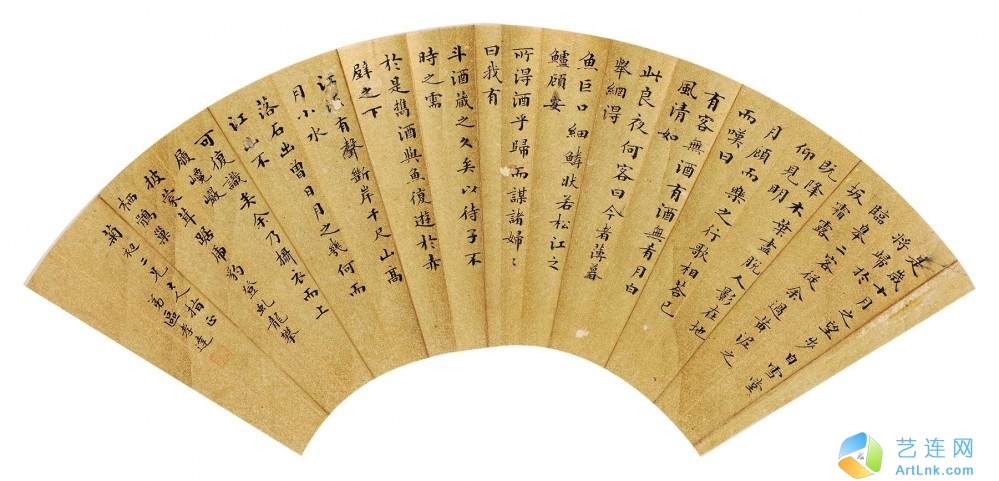 是歲十月之望步自雪堂
將歸於
臨皋二客從余過黃泥之
坂霜露
既降木葉盡脫人影在地
仰見明
月顧而樂之行歌相答已
而嘆曰
有客無酒有酒無肴月白
風清如
此良夜何客曰今者薄暮
舉網得
魚巨口細鱗狀若松江之
鱸顧安
所得酒乎歸而謀諸婦〻
曰我有
斗酒藏之久矣以待子不
時之需
於是攜酒與魚復遊於赤
壁之下
江流有聲斷岸千尺山高
月小水
落石出曾日月之幾何而
江山不
可復識矣余乃攝衣而上
履巉巖
披蒙茸踞虎豹登虬龍攀
栖鶻巢
菊二兄大人指正
弟區孝達
艺连网
ArtLnk.com